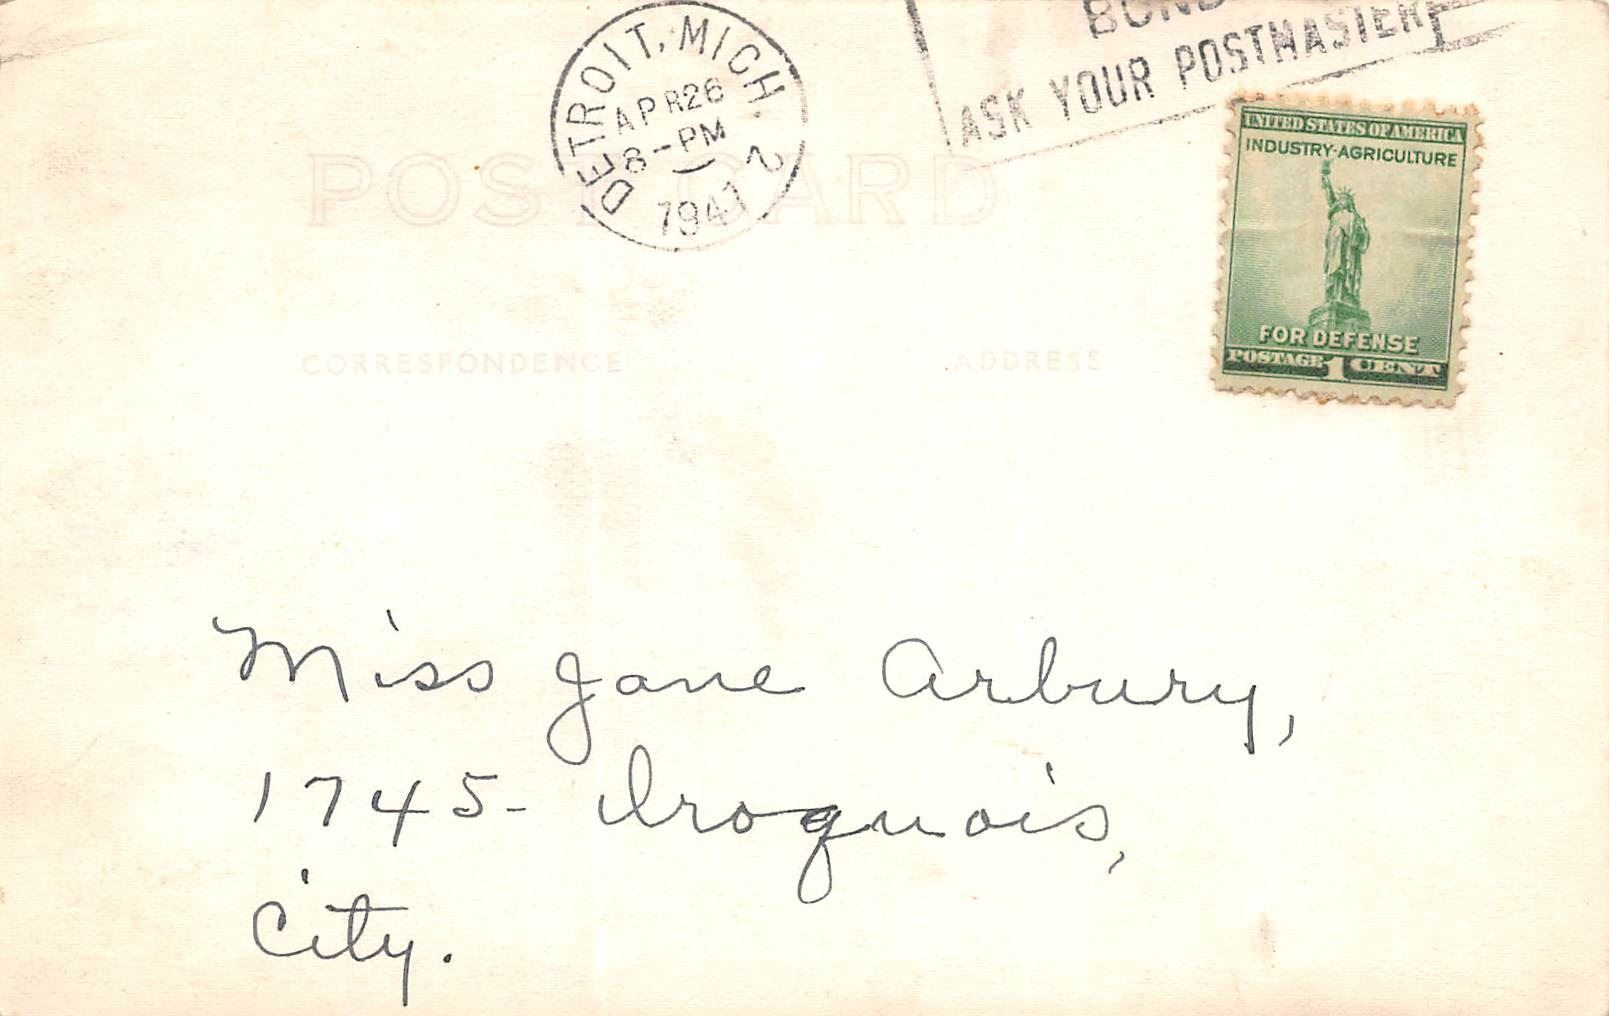 DETROIT, MICH. 2
APR 26
8-PM
1947
BOND
ASK YOUR POSTMASTER
UNITED STATES OF AMERICA
INDUSTRY-AGRICULTURE
FOR DEFENSE
POSTAGE 1 CENT
POST CARD
CORRESPONDENCE
ADDRESS
Miss Jane Arbury,
1745- Iroquois,
City.